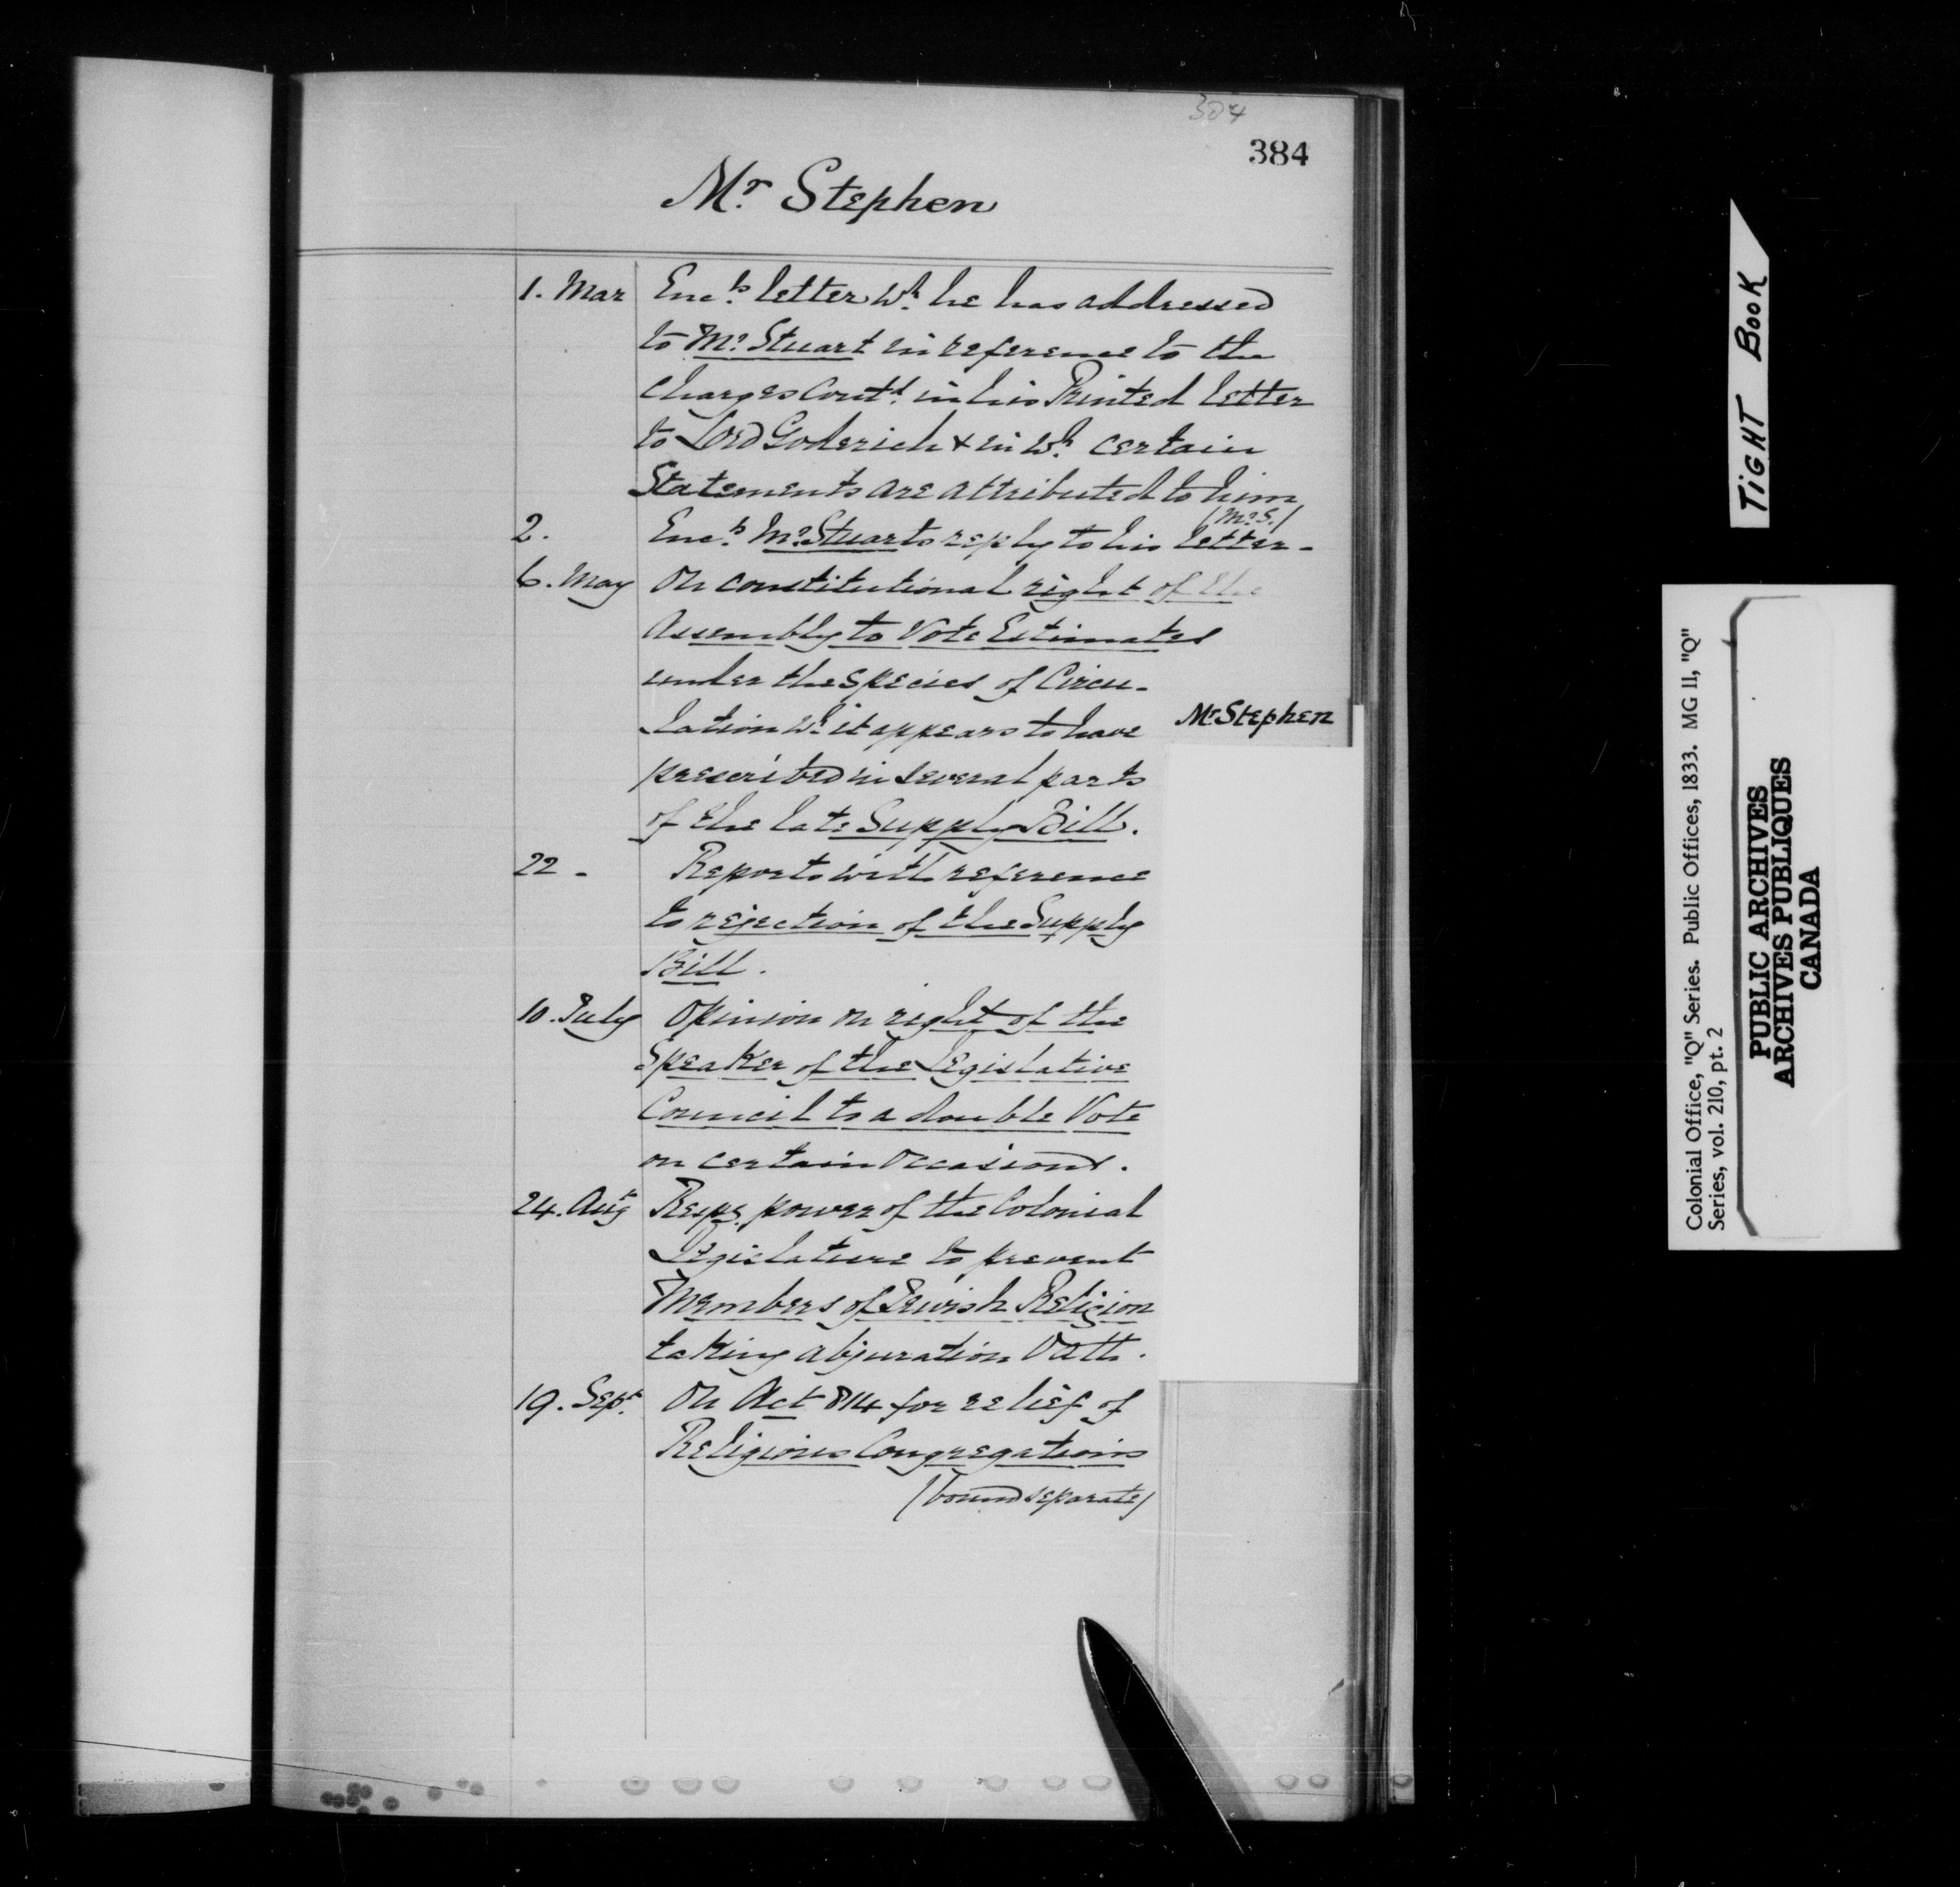 384
384
Mr. Stephen
1. Mar Encs. letter wh. he has addressed
to Mr. Stuart in reference to the
charges Contd. in his Printed letter
to Lord Goderich & in wh. certain
Statements are attributed to him
(Mr. S.)
2. Encs. Mr. Stuarts reply to his letter -
6. May On constitutional right of the
Assembly to Vote Estimates
under the species of Circu-
lation wh. it appears to have
Mr Stephen
prescribed in several parts
of the late Supply Bill.
22 - Reports with reference
to rejection of the Supply
Bill.
10. July Opinion on right of the
Speaker of the Legislative
Council to a double Vote
on certain occasions.
24. Augt Respg. power of the Colonial
Legislature to prevent
Members of Jewish Religion
taking abjuration Oath.
19. Sept. On Act 814 for relief of
Religious Congregations
(bound separate)
TIGHT BOOK
Colonial Office, "Q" Series. Public Offices, 1833. MG 11, "Q"
Series, vol. 210, pt. 2
PUBLIC ARCHIVES
ARCHIVES PUBLIQUES
CANADA